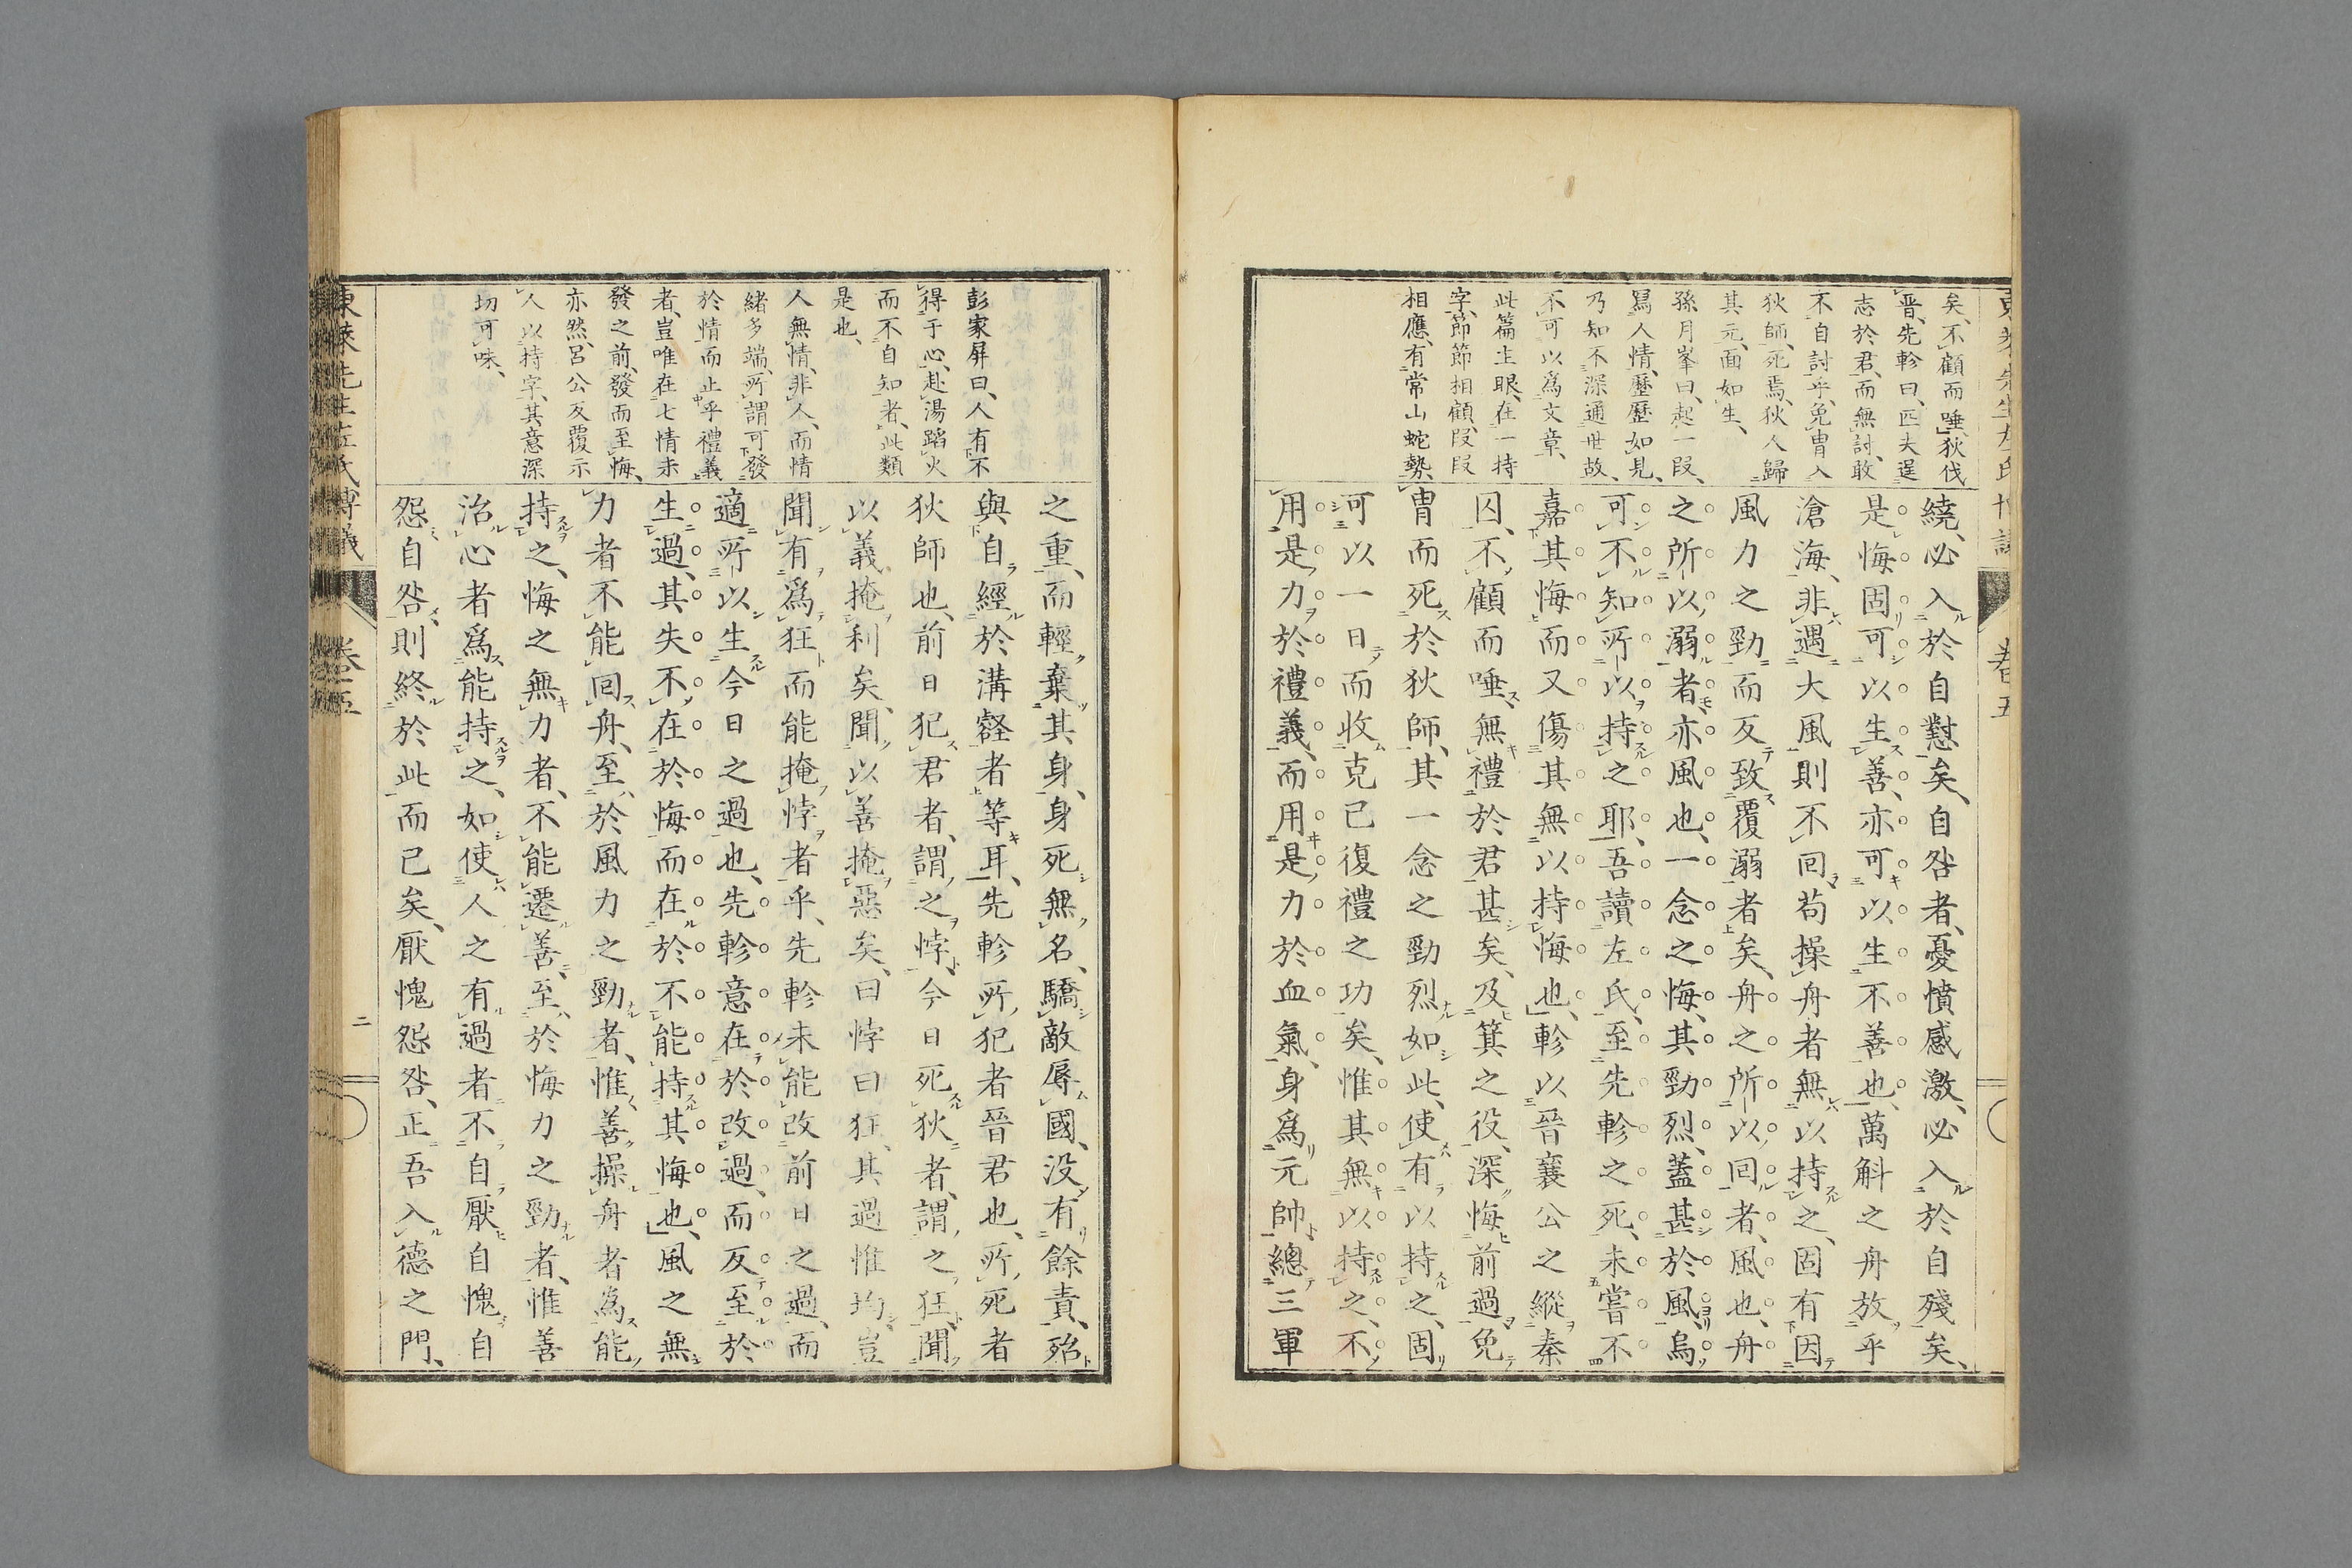 矣、不顧而唾、狄伐
晋、先軫曰、匹夫逞
志於君、而無討、敢
不自討乎、免冑入
狄師、死焉、狄人歸
其元、面如生、
孫月峯曰、起一段、
寫人情、歷歷如見、
乃知不深通世故、
不可以爲文章、
此篇主眼、在一持
字、節節相顧、段段
相應、有常山蛇勢、
繞、必入於自懟矣、自咎者、憂憤感激、必入於自殘矣、
是悔固可以生善、亦可以生不善也、萬斛之舟放乎
滄海、非遇大風則不回、苟操舟者無以持之、固有因
風力之勁而反致覆溺者矣、舟之所以回者、風也、舟
之所以溺者、亦風也、一念之悔、其勁烈、蓋甚於風、烏
可不知所以持之耶、吾讀左氏、至先軫之死、未嘗不
嘉其悔而又傷其無以持悔也、軫以晉襄公之縱秦
囚、不顧而唾、無禮於君甚矣、及箕之役、深悔前過、免
冑而死於狄師、其一念之勁烈如此、使有以持之、固
可以一日而收克己復禮之功矣、惟其無以持之、不
用是力於禮義、而用是力於血氣、身爲元帥、總三軍
彭家屏曰、人有不
得于心、赴湯蹈火
而不自知者、此類
是也、
人無情、非人、而情
緒多端、所謂可發
於情而止乎禮義
者、豈唯在七情未
發之前、發而至悔、
亦然、呂公反覆示
人以持字、其意深
切可味、
之重、而輕棄其身、身死無名、驕敵辱國、没有餘責、殆
與自經於溝壑者等耳、先軫所犯者晉君也、所死者
狄師也、前日犯君者、謂之悖、今日死狄者、謂之狂、聞
以義掩利矣、聞以善掩惡矣、曰悖曰狂、其過惟均、豈
聞有爲狂而能掩悖者乎、先軫未能改前日之過、而
適所以生今日之過也、先軫意在於改過、而反至於
生過、其失不在於悔而在於不能持其悔也、風之無
力者不能回舟、至於風力之勁者、惟善操舟者爲能
持之、悔之無力者、不能遷善、至於悔力之勁者、惟善
治心者爲能持之、如使人之有過者不自厭自愧自
怨自咎、則終於此而已矣、厭愧怨咎、正吾入德之門、
東萊先生左氏博議
卷五
二